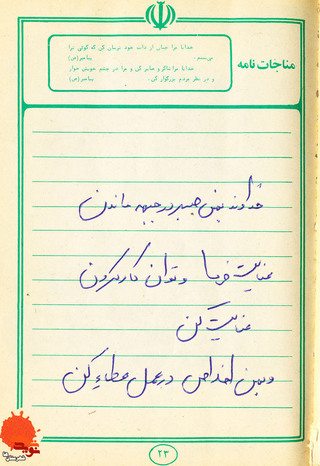 مناجات نامه
خدایا مرا چنان از ذات خود ترسان کن که گوئی ترا
می‌بینم. پیامبر (ص)
خدایا مرا شاکر و صابر کن و مرا در چشم خویش خوار
و در نظر مردم بزرگوار کن. پیامبر (ص)
خداوند بمن صبر در جبهه ماندن
عنایت فرما و توان کار کردن
عنایت کن
و بمن اخلاص در عمل عطاء کن
۲۳
نوید